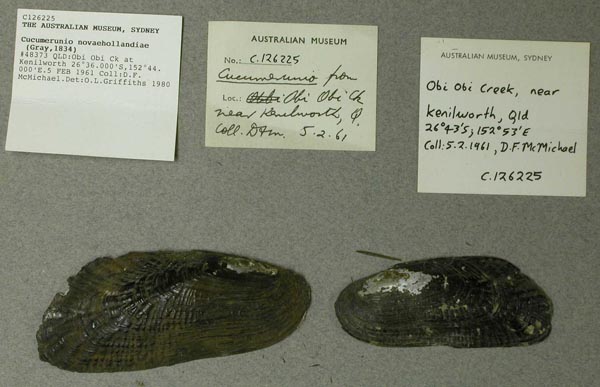 C126225
THE AUSTRALIAN MUSEUM, SYDNEY
Cucumerunio novaehollandiae
(Gray,1834)
#48373 QLD:Obi Obi Ck at
Kenilworth 26°36.000'S,152°44.
000'E.5 FEB 1961 Coll:D.F.
McMichael.Det:O.L.Griffiths 1980
AUSTRALIAN MUSEUM
No.: C.126225
Cucumerunio from
Loc.: Obi Obi Ck
near Kenilworth, Q.
Coll. DFM. 5.2.61
AUSTRALIAN MUSEUM, SYDNEY
Obi Obi Creek, near
Kenilworth, Qld
26°43'S; 152°53'E
Coll: 5.2.1961, D.F. McMichael
C.126225